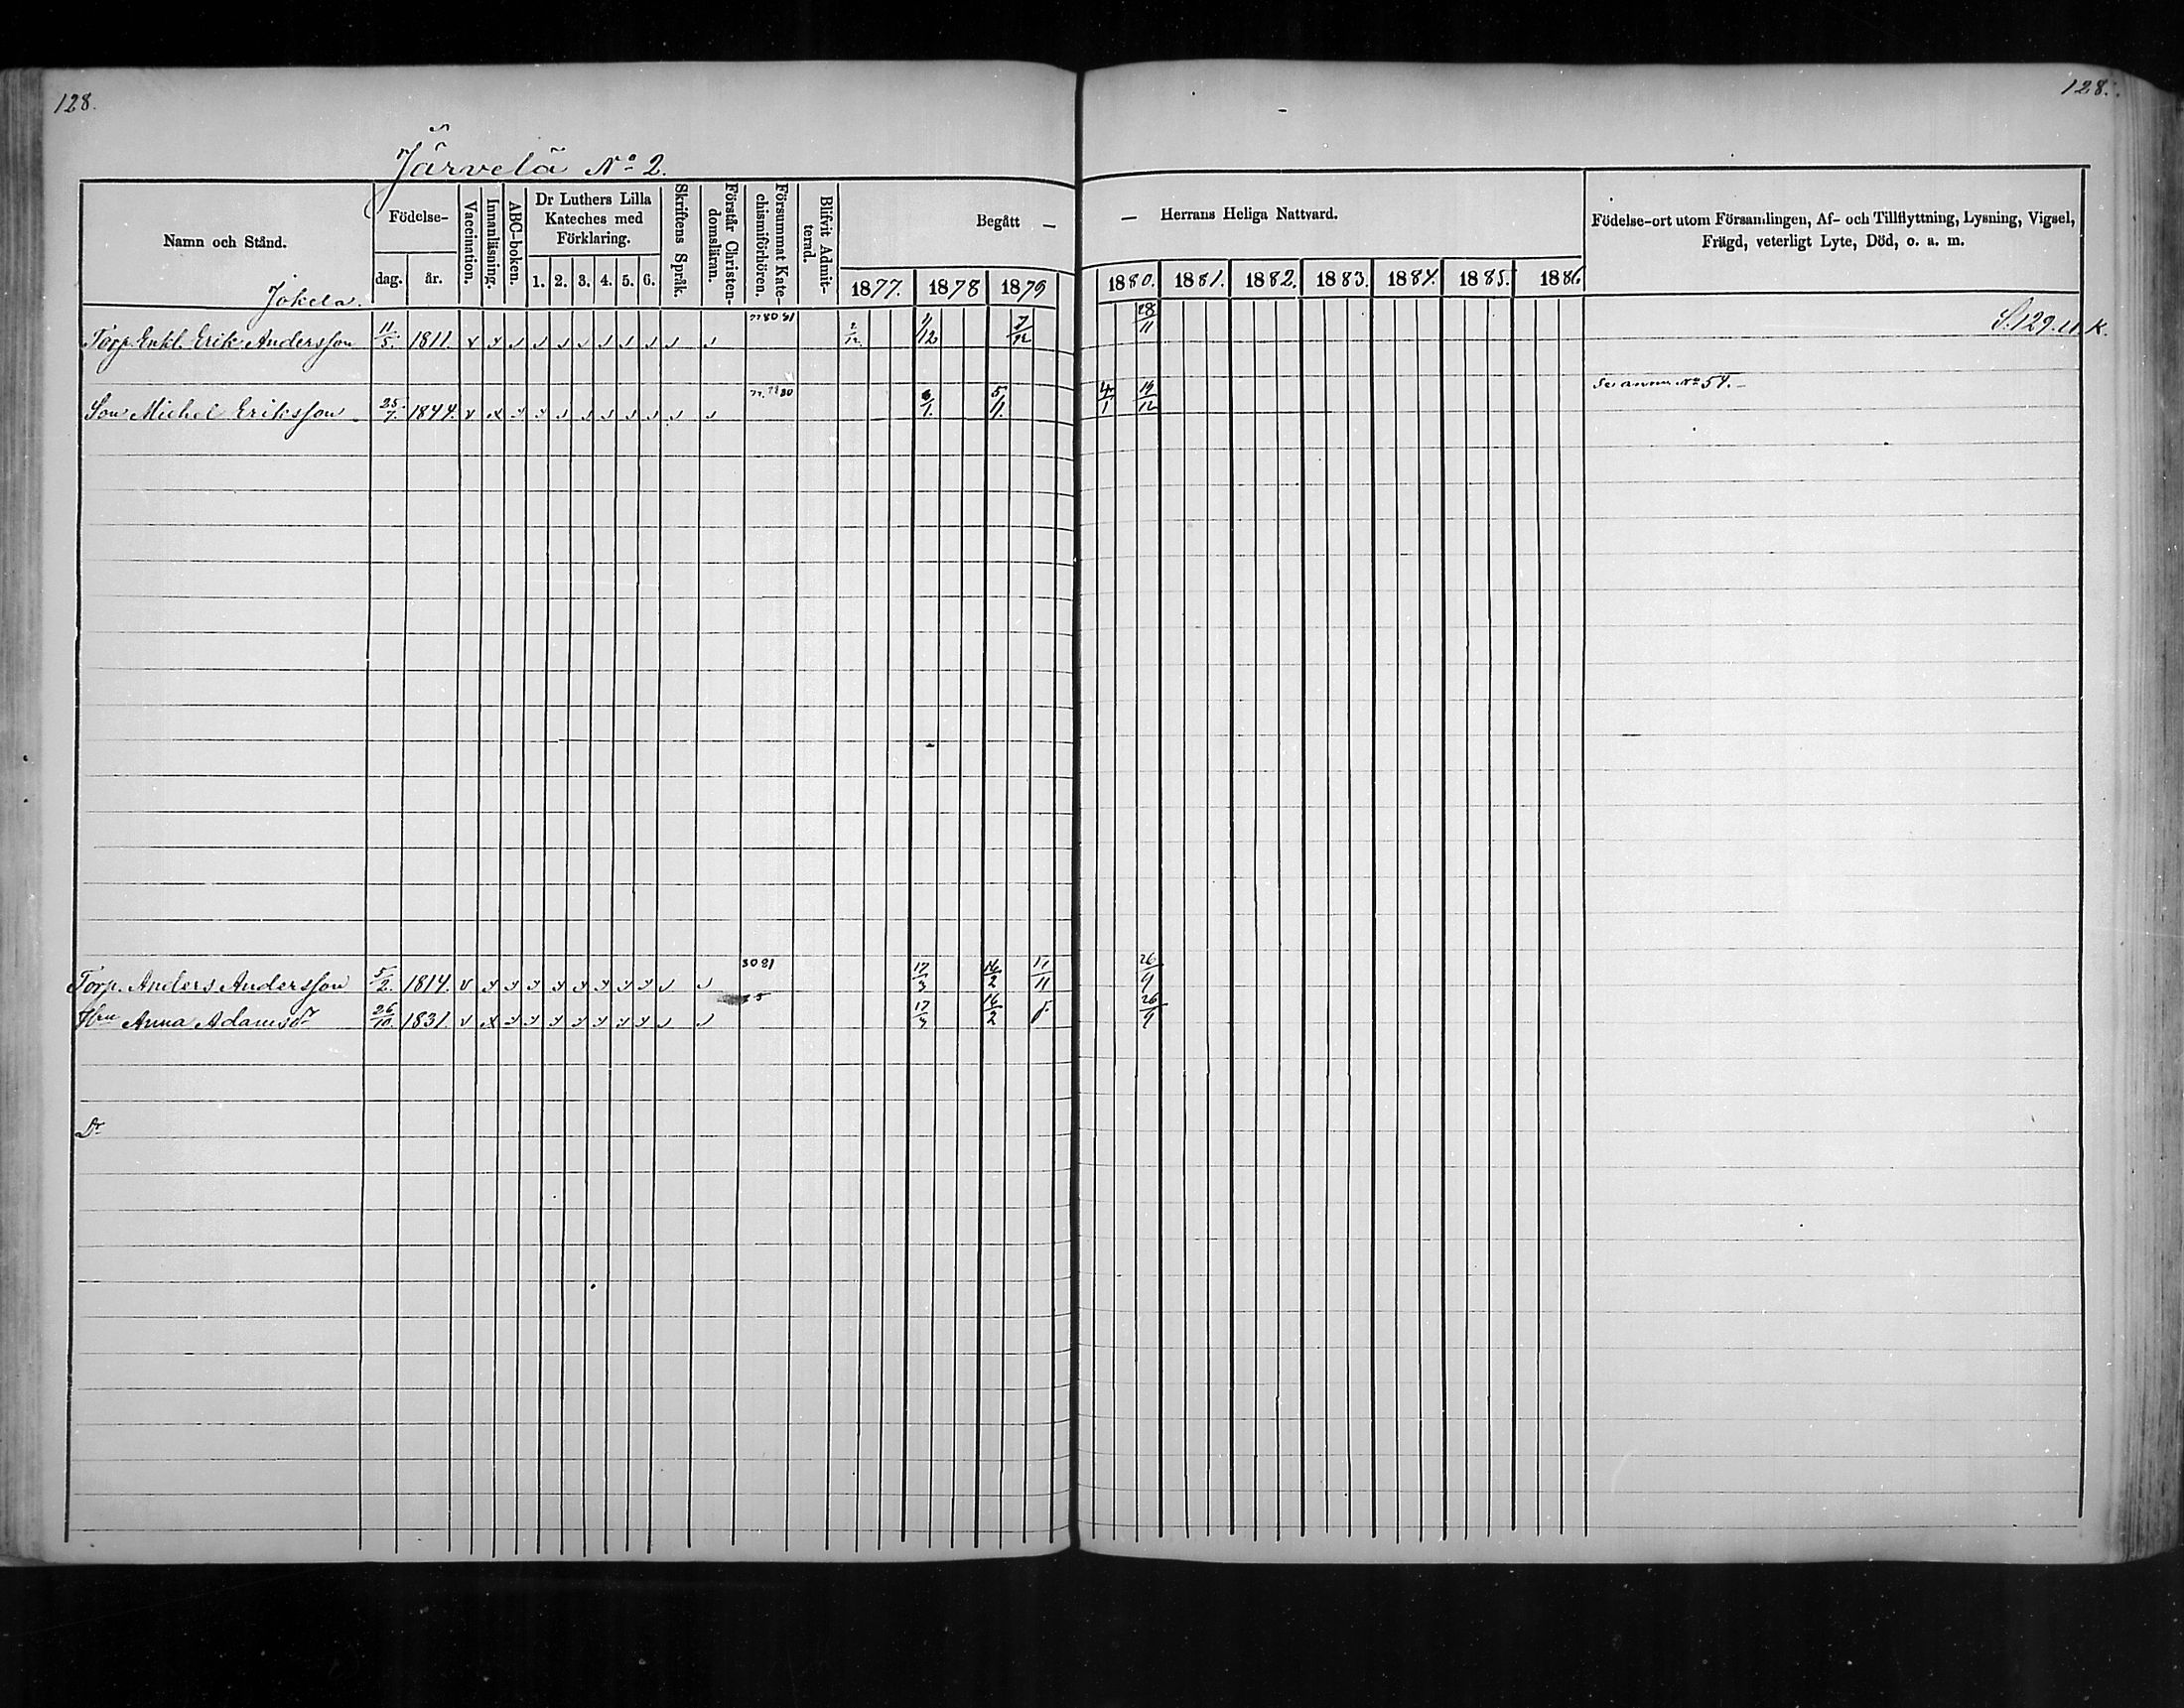 128.
128.
Järvelä No 2.
Namn och Stånd.
Födelse-
dag.
år.
Vaccination.
Innanläsning.
ABC-boken.
Dr Luthers Lilla
Kateches med
Förklaring.
1. 2. 3. 4. 5. 6.
Skriftens Språk.
Förstår Christen-
domsläran.
Försummat Kate-
chismiförhören.
Blifvit Admit-
terad.
Begått —
1877. 1878 1879
— Herrans Heliga Nattvard.
1880. 1881. 1882. 1883. 1884. 1885. 1886
Födelse-ort utom Församlingen, Af- och Tillflyttning, Lysning, Vigsel,
Frägd, veterligt Lyte, Död, o. a. m.
Jokela.
Torp. Enkl. Erik Andersson 11/5. 1811. 80 81 2/12 1/12 7/12 28/11 S. 129. u. K.
Son Michel Eriksson 25/7. 1844. 80 6/1. 5/11. 4/1 19/12 No 54.
Torp. Anders Andersson 5/2. 1814. 80 81 17/3 16/2 17/11 26/9
Hru Anna Adamsdr 26/10 1831. 17/3 16/2 26/9
Dr